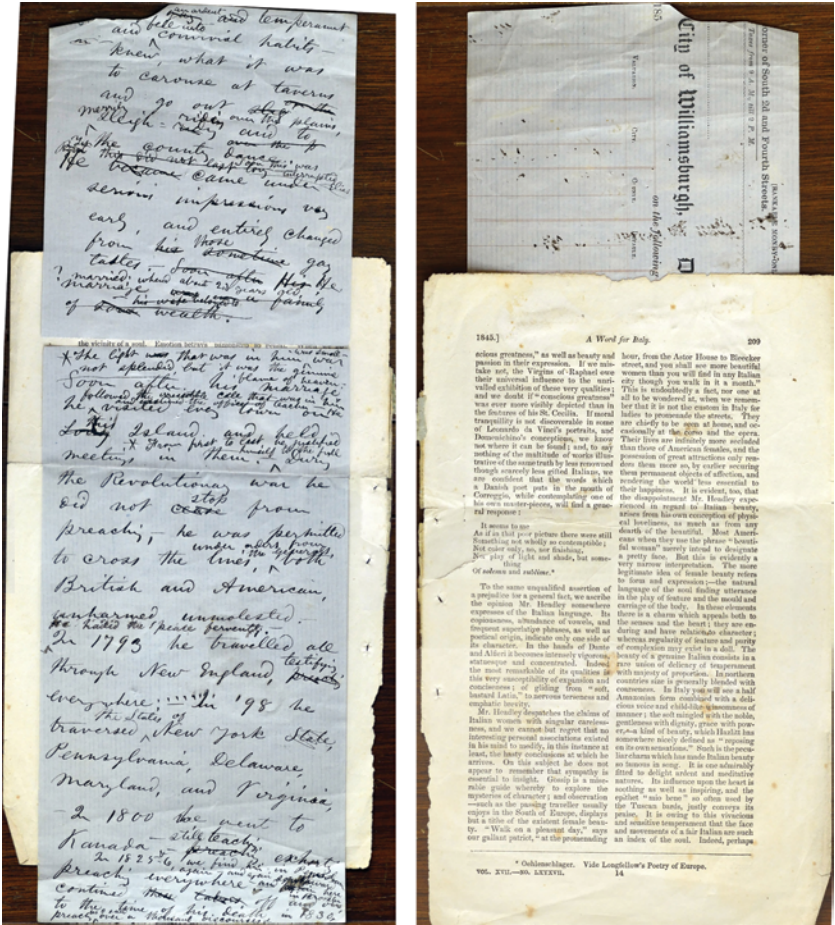 an ardent
and temperament
fell into
and convivial habits –
knew, what it was
to carouse at taverns
and go out
merry sleigh-riding over the plains,
and to
the country dance.
this was
came under
serious impressions very
early, and entirely changed
from his those sometime gay
tastes – Soon after He
? married, when about 22 years old,
marriage
a family
of wealth.
the vicinity of a soul.
* The light that was in him was
not splendid but it was the genuine
blaze of heaven.
Soon after his marriage he
followed the
he visited every town on
Long this Island and held
* From first to last he justified
himself to the full
meetings in them. During
the Revolutionary war he
did not cease stop from
preaching, – he was permitted
under orders from
the generals,
to cross the lines, both
British and American,
unharmed unmolested.
He hailed the peace fervently.
In 1793 he travelled all
through New England, testifying
everywhere; In '98 he
the States of
traversed New York State,
Pennsylvania, Delaware,
Maryland, and Virginia,
In 1800 he went to
Kanada – still teaching
In 1825-6, we find
preach everywhere
to the time of his death in 1830
preach over a thousand discourses
185
orner of South 2d and Fourth Streets.
Taxes from 9 A. M., till 2 P. M.
[BANKABLE MONEY ONLY
City of Williamsburgh, D
on the following
VALUATION.
CITY.
1845.] A Word for Italy. 209
scious greatness," as well as beauty and
passion in their expression. If we mis-
take not, the Virgins of Raphael owe
their universal influence to the unri-
valled exhibition of these very qualities;
and we doubt if "conscious greatness"
was ever more visibly depicted than in
the features of his St. Cecilia. If moral
tranquility is not discoverable in some
of Leonardo da Vinci's portraits, and
Domenichino's conceptions, we know
not where it can be found; and, to say
nothing of the multitude of works illus-
trative of the same truth by less renowned
though scarcely less gifted Italians, we
are confident that the words which
a Danish poet puts in the mouth of
Correggio, while contemplating one of
his own master-pieces, will find a gene-
ral response:
It seems to me
As if in that poor picture there were still
Something not wholly so contemptible;
Not color only, no, nor finishing,
Nor play of light and shade, but some-
thing
Of solemn and sublime.*
To the same unqualified assertion of
a prejudice for a general fact, we ascribe
the opinion Mr. Headley somewhere
expresses of the Italian language. Its
copiousness, abundance of vowels, and
frequent superlative phrases, as well as
poetical origin, indicate only one side of
its character. In the hands of Dante
and Alfieri it becomes intensely vigorous,
statuesque and concentrated. Indeed
the most remarkable of its qualities is
this very susceptibility of expansion and
conciseness; of gliding from "soft,
bastard Latin," to nervous terseness and
emphatic brevity.
Mr. Headley despatches the claims of
Italian women with singular careless-
ness, and we cannot but regret that no
interesting personal associations existed
in his mind to modify, in this instance at
least, the hasty conclusions at which he
arrives. On this subject he does not
appear to remember that sympathy is
essential to insight. Gossip is a mise-
rable guide whereby to explore the
mysteries of character; and observation
—such as the passing traveller usually
enjoys in the South of Europe, displays
but a tithe of the existent female beau-
ty. "Walk on a pleasant day," says
our gallant patriot, "at the promenading
hour, from the Astor House to Bleecker
street, and you shall see more beautiful
women than you will find in any Italian
city though you walk in it a month."
This is undoubtedly a fact, nor one at
all to be wondered at, when we remem-
ber that it is not the custom in Italy for
ladies to promenade the streets. They
are chiefly to be seen at home, and oc-
casionally at the corso and the opera.
Their lives are infinitely more secluded
than those of American females, and the
possession of great attractions only ren-
ders them more so, by earlier securing
them permanent objects of affection, and
rendering the world less essential to
their happiness. It is evident, too, that
the disappointment Mr. Headley expe-
rienced in regard to Italian beauty,
arises from his own conception of physi-
cal loveliness, as much as from any
dearth of the beautiful. Most Ameri-
cans when they use the phrase "beauti-
ful woman" merely intend to designate
a pretty face. But this is evidently a
very narrow interpretation. The more
legitimate idea of female beauty refers
to form and expression;—the natural
language of the soul finding utterance
in the play of feature and the mould and
carriage of the body. In these elements
there is a charm which appeals both to
the senses and the heart; they are en-
during and have relation to character;
whereas regularity of feature and purity
of complexion may exist in a doll. The
beauty of a genuine Italian consists in a
rare union of delicacy of temperament
with majesty of proportion. In northern
countries size is generally blended with
coarseness. In Italy you will see a half
Amazonian form combined with a deli-
cious voice and child-like winsomeness of
manner; the soft mingled with the noble,
gentleness with dignity, grace with pow-
er,—a kind of beauty, which Hazlitt has
somewhere nicely defined as "reposing
on its own sensations." Such is the pecu-
liar charm which has made Italian beauty
so famous in song. It is one admirably
fitted to delight ardent and meditative
natures. Its influence upon the heart is
soothing as well as inspiring, and the
epithet "mio bene" so often used by
the Tuscan bards, justly conveys its
praise. It is owing to this vivacious
and sensitive temperament that the face
and movements of a fair Italian are such
an index of the soul. Indeed, perhaps
* Oehlenschlager. Vide Longfellow's Poetry of Europe.
VOL. XVII.—NO. LXXXVII. 14